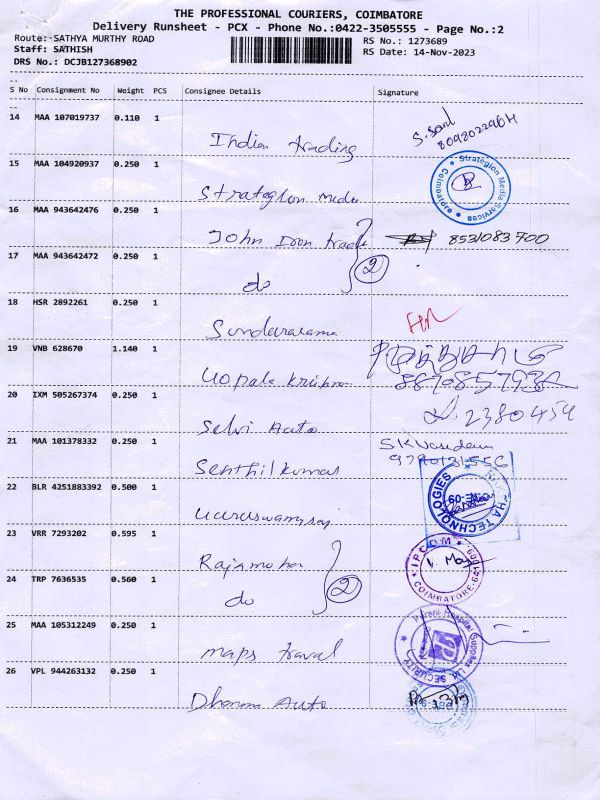 THE PROFESSIONAL COURIERS, COIMBATORE
Delivery Runsheet - PCX - Phone No.:0422-3505555 - Page No.:2
Route: SATHYA MURTHY ROAD RS No.: 1273689
Staff: SATHISH RS Date: 14-Nov-2023
DRS No.: DCJB127368902
S No Consignment No Weight PCS Consignee Details Signature
14 MAA 107019737 0.110 1
Indian trading 8098022964
15 MAA 104920937 0.250 1
Strategion Media Strategion Media Services * Coimbatore *
16 MAA 943642476 0.250 1
John Iron trade 8531083700
17 MAA 943642472 0.250 1
do 2
18 HSR 2892261 0.250 1
Sundararama
19 VNB 628670 1.140 1
Gopala Krishna
20 IXM 505267374 0.250 1
Selvi Auto
21 MAA 101378332 0.250 1
Senthilkumar SK Vasudevan
22 BLR 4251883392 0.500 1
TECHNOLOGIES
23 VRR 7293202 0.595 1
Rajamohan
24 TRP 7636535 0.560 1
do 2 COIMBATORE
25 MAA 105312249 0.250 1
maps travel SECURITY
26 VPL 944263132 0.250 1
Dharani Auto